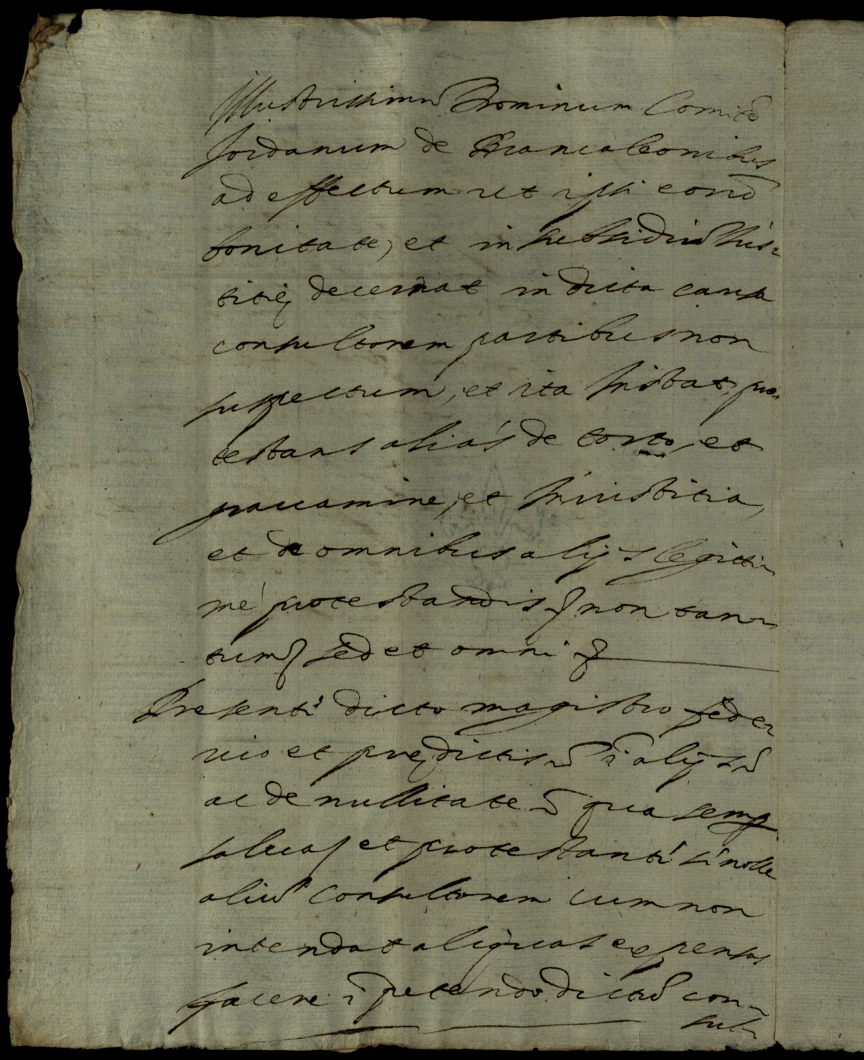 Illustrissimũ Dominum Comitẽ
Jordanum de Brancaleonibus
ad effectum ut ipsi
bonitate, et in subsidiũ Jus-
titię decernat in dicta causa
consultorem partibus non
suspectum, et ita instat, pro-
testans aliàs de torto, et
grauamine, et iniustitia,
et de omnibus alijs legitti-
mè protestandis non tan-
tum sed et omni
Presentè dicto magistro Fede-
rico et prędictis alijs
ac de nullitate qua semp
salua et protestantè se nolle
aliũ consultorem cum non
intendat aliquas expensas
facere ĩ petendo dictũ con-
sul-